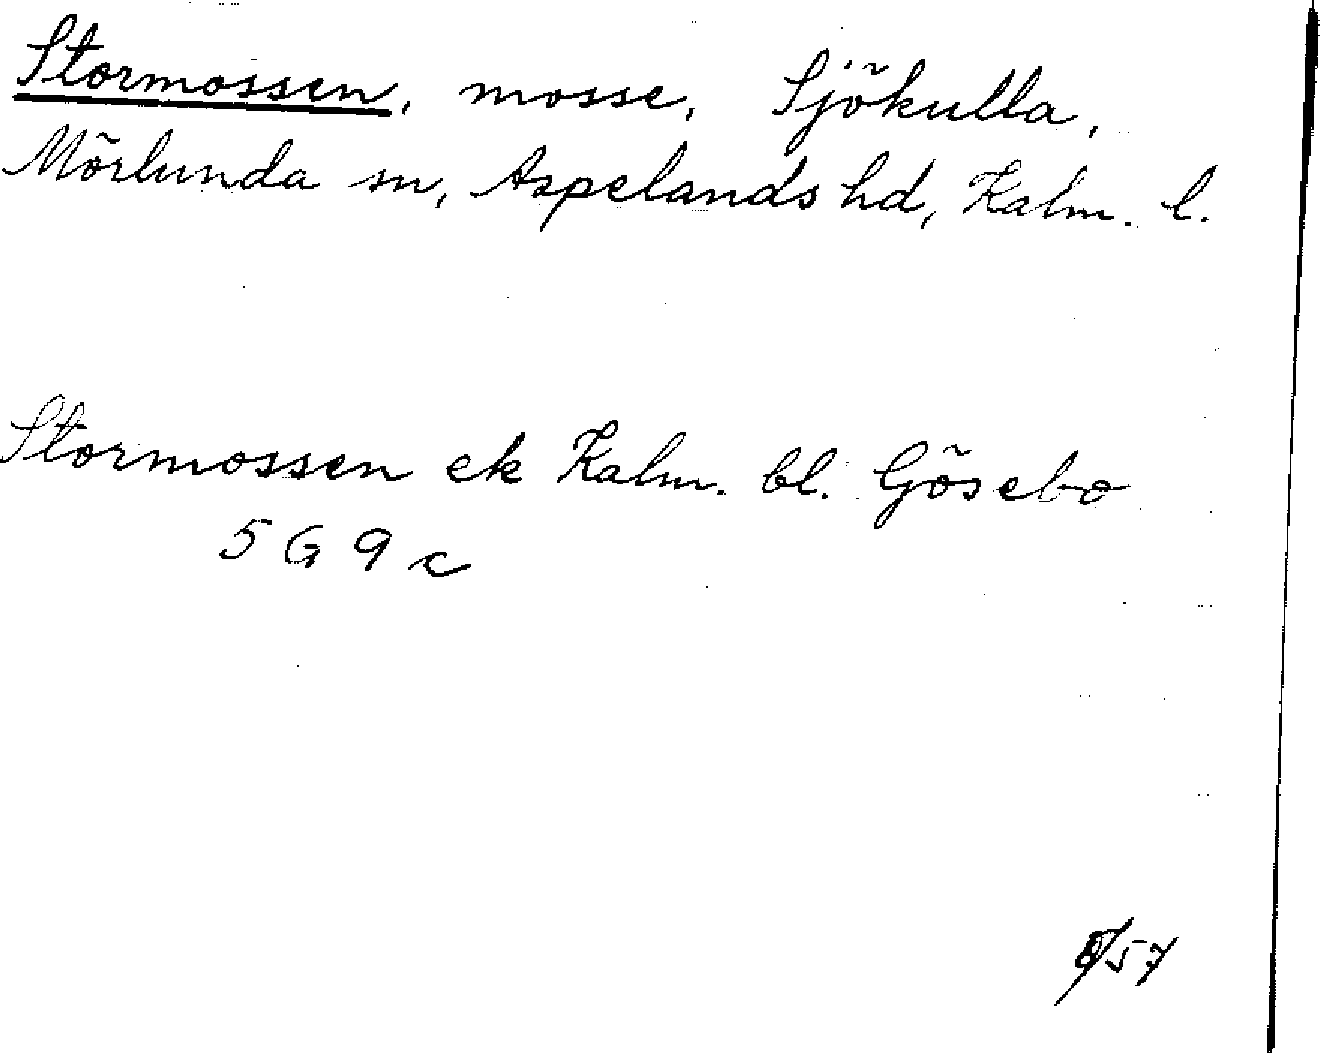 Stormossen, mosse, Sjökulla,
Mörlunda sn, Aspelands hd, Kalm. l.
Stormossen ek Kalm. bl. Gösebo
5 G 9 c